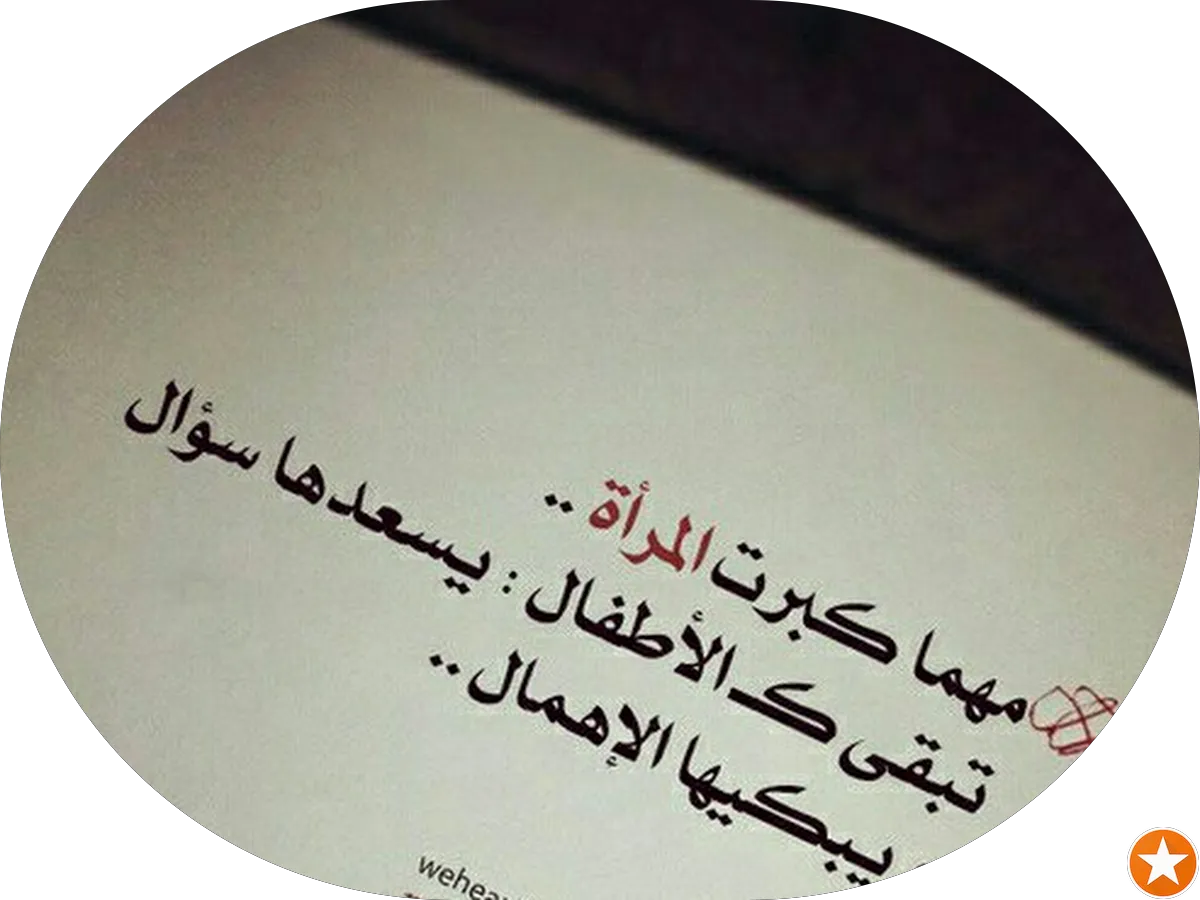 مهما كبرت المرأة ..
تبقى كـ الأطفال : يسعدها سؤال
يبكيها الإهمال ..